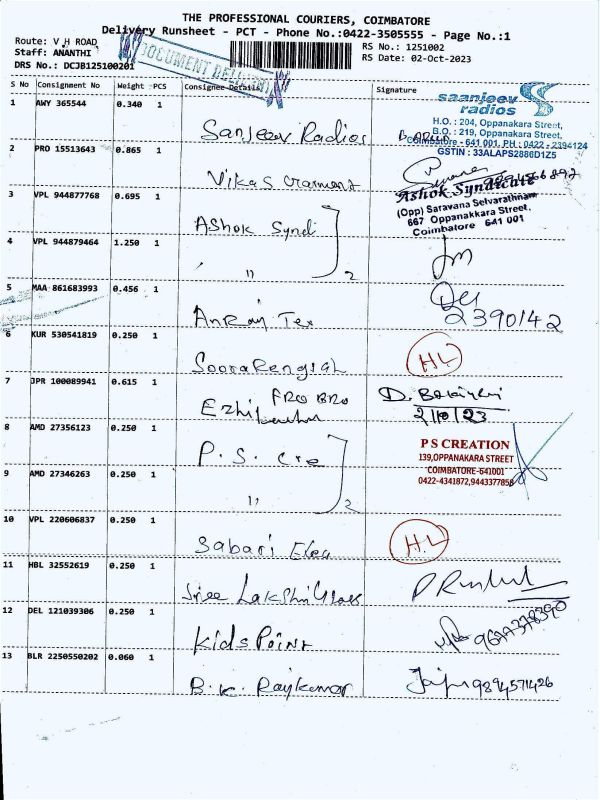 THE PROFESSIONAL COURIERS, COIMBATORE
Delivery Runsheet - PCT - Phone No.:0422-3505555 - Page No.:1
Route: V H ROAD
Staff: ANANTHI
DRS No.: DCJB125100201
RS No.: 1251002
RS Date: 02-Oct-2023
DOCUMENT
S No Consignment No Weight PCS Consignee Details Signature
1 AWY 365544 0.340 1 Sanjeev Radios
saanjeev
radios
H.O. : 204, Oppanakara Street,
B.O. : 219, Oppanakara Street,
Coimbatore - 641 001. PH : 0422 - 2394124
GSTIN : 33ALAPS2886D1Z5
2 PRO 15513643 0.865 1 Vikas
3 VPL 944877768 0.695 1 Ashok Synd
Ashok Syndicate
(Opp) Saravana Selvarathnam
667 Oppanakkara Street,
Coimbatore 641 001
4 VPL 944879464 1.250 1 " 2
5 MAA 861683993 0.456 1 Tex 2390142
6 KUR 530541819 0.250 1 H.L
7 JPR 100089941 0.615 1 FRO BRO
2/10/23
8 AMD 27356123 0.250 1 P.S. Cre
P S CREATION
139,OPPANAKARA STREET
COIMBATORE-641001
0422-4341872,9443377858
9 AMD 27346263 0.250 1 " 2
10 VPL 220606837 0.250 1 Sabari Elec H.L
11 HBL 32552619 0.250 1 Sree Lakshmi
12 DEL 121039306 0.250 1 Kids Point
13 BLR 2250550202 0.060 1 B.K. Rajkumar 9894571426